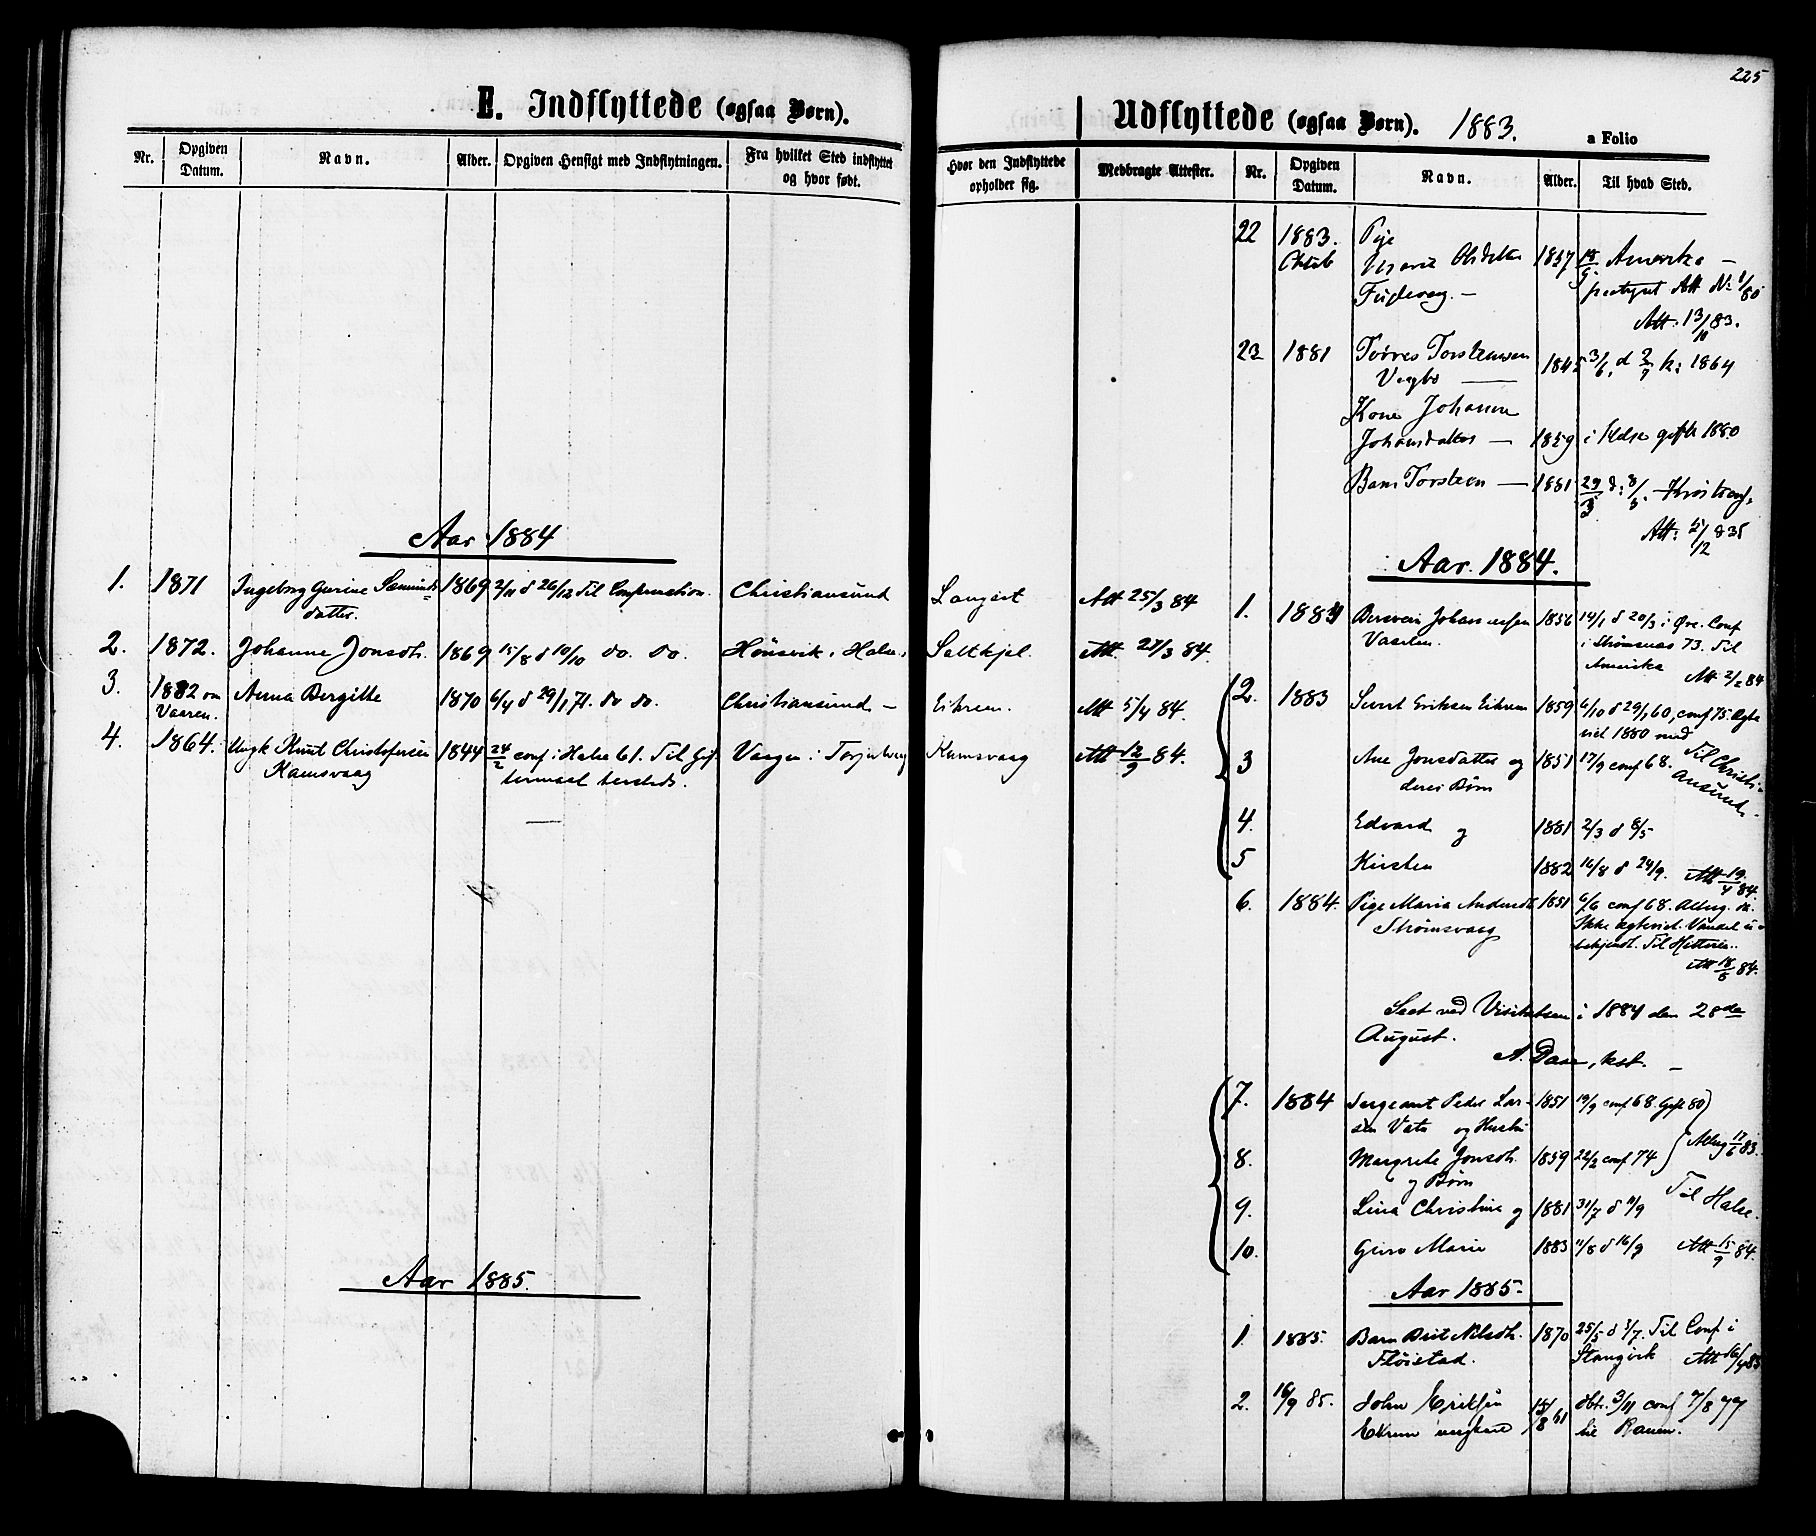 225
E. Indflyttede (ogsaa Børn).
Nr.
Opgiven Datum.
Navn.
Alder.
Opgiven Hensigt med Indflytningen.
Fra hvilket Sted indflyttet og hvor født.
Hvor den Indflyttede opholder sig.
Medbragte Attester.
Aar 1884
1. 1871 Ingeborg Gurine 1869 2/11 d 26/12 Til Confirmation. Christiansund Langset Att 25/3 84
datter.
2. 1872. Johanne Jonsdtr. 1869 15/8 d 10/10 do. do. Hønsvik i Halse. Saltkjel. Att. 27/3 84.
3. 1882 om Vaaren. Anna Bergitte 1870 6/4 d 29/1 71. do do. Christiansund – Eikrem. Att 5/4 84.
4. 1864. Ungk Knut Christophersen 1844 24/2 conf i Halse 61. Til Gif- Vaagen i Kamsvaag Att 12/9 84.
Kamsvaag termaal hersteds.
Aar 1885.
Udflyttede (ogsaa Børn). 1883.
a Folio
Nr.
Opgiven Datum.
Navn.
Alder.
Til hvad Sted.
22 1883. Pige
Oktob Olsdatter 1857 Amerika –
Att No 1/80
Att. 13/10 83.
23 1881 Torstensen 1845 3/6, d 2/7 k: 1864
Kone Johanne
Johansdatter — 1859 i Halse gift 1880
Barn Torsten — 1881 29/3 d:
Att: 5/12 83
Aar. 1884.
1. 1884 Johannessen 1856 14/1 d 20/3 i Øre. Conf
i Strømsnes 73. Til
Amerika
Att 2/2 84
2. 1883 Sivert Eriksen Eikrem 1859 6/10 d 29/1 60, conf 75. Ægte
viet 1880 med
3 Ane Jonsdatter og 1851 17/9 conf 68. Til Christi-
deres Børn ansund.
4. Edvard og 1881 2/3 d 8/5
5 Kirsten 1882 16/8 d 24/9. Att 19/4 84
6. 1884. Pige Maria Andersdt 1851 6/6 conf 68.
Strømsvaag Ikke ægteviet. Vandel u-
bekjendt. Til Hitteren.
Att 18/6 84.
Seet ved Visitatsen i 1884 den 28de
August.
A. Daae, kst. –
7. 1884 Sergeant Peder Lar- 1851 19/9 conf 68. Gift 80
sen og Hustru
8. Margrete Jonsdtr. 1859 22/2 conf 74
og Børn
9. Lina Christine og 1881 31/7 d 11/9 Til Halse.
10. Guro Marie 1883 11/8 d 16/9 Att 15/9 84.
Aar 1885.
1. 1885. Barn Brit Nilsdtr. 1870 25/5 d 3/7. Til Conf i
Fløistad. Stangvik Att 16/4 85
2. 16/9 85. John Eriksen 15/8 61 døbt 3/11 conf 9/8 77
Ekrem ungkarl til